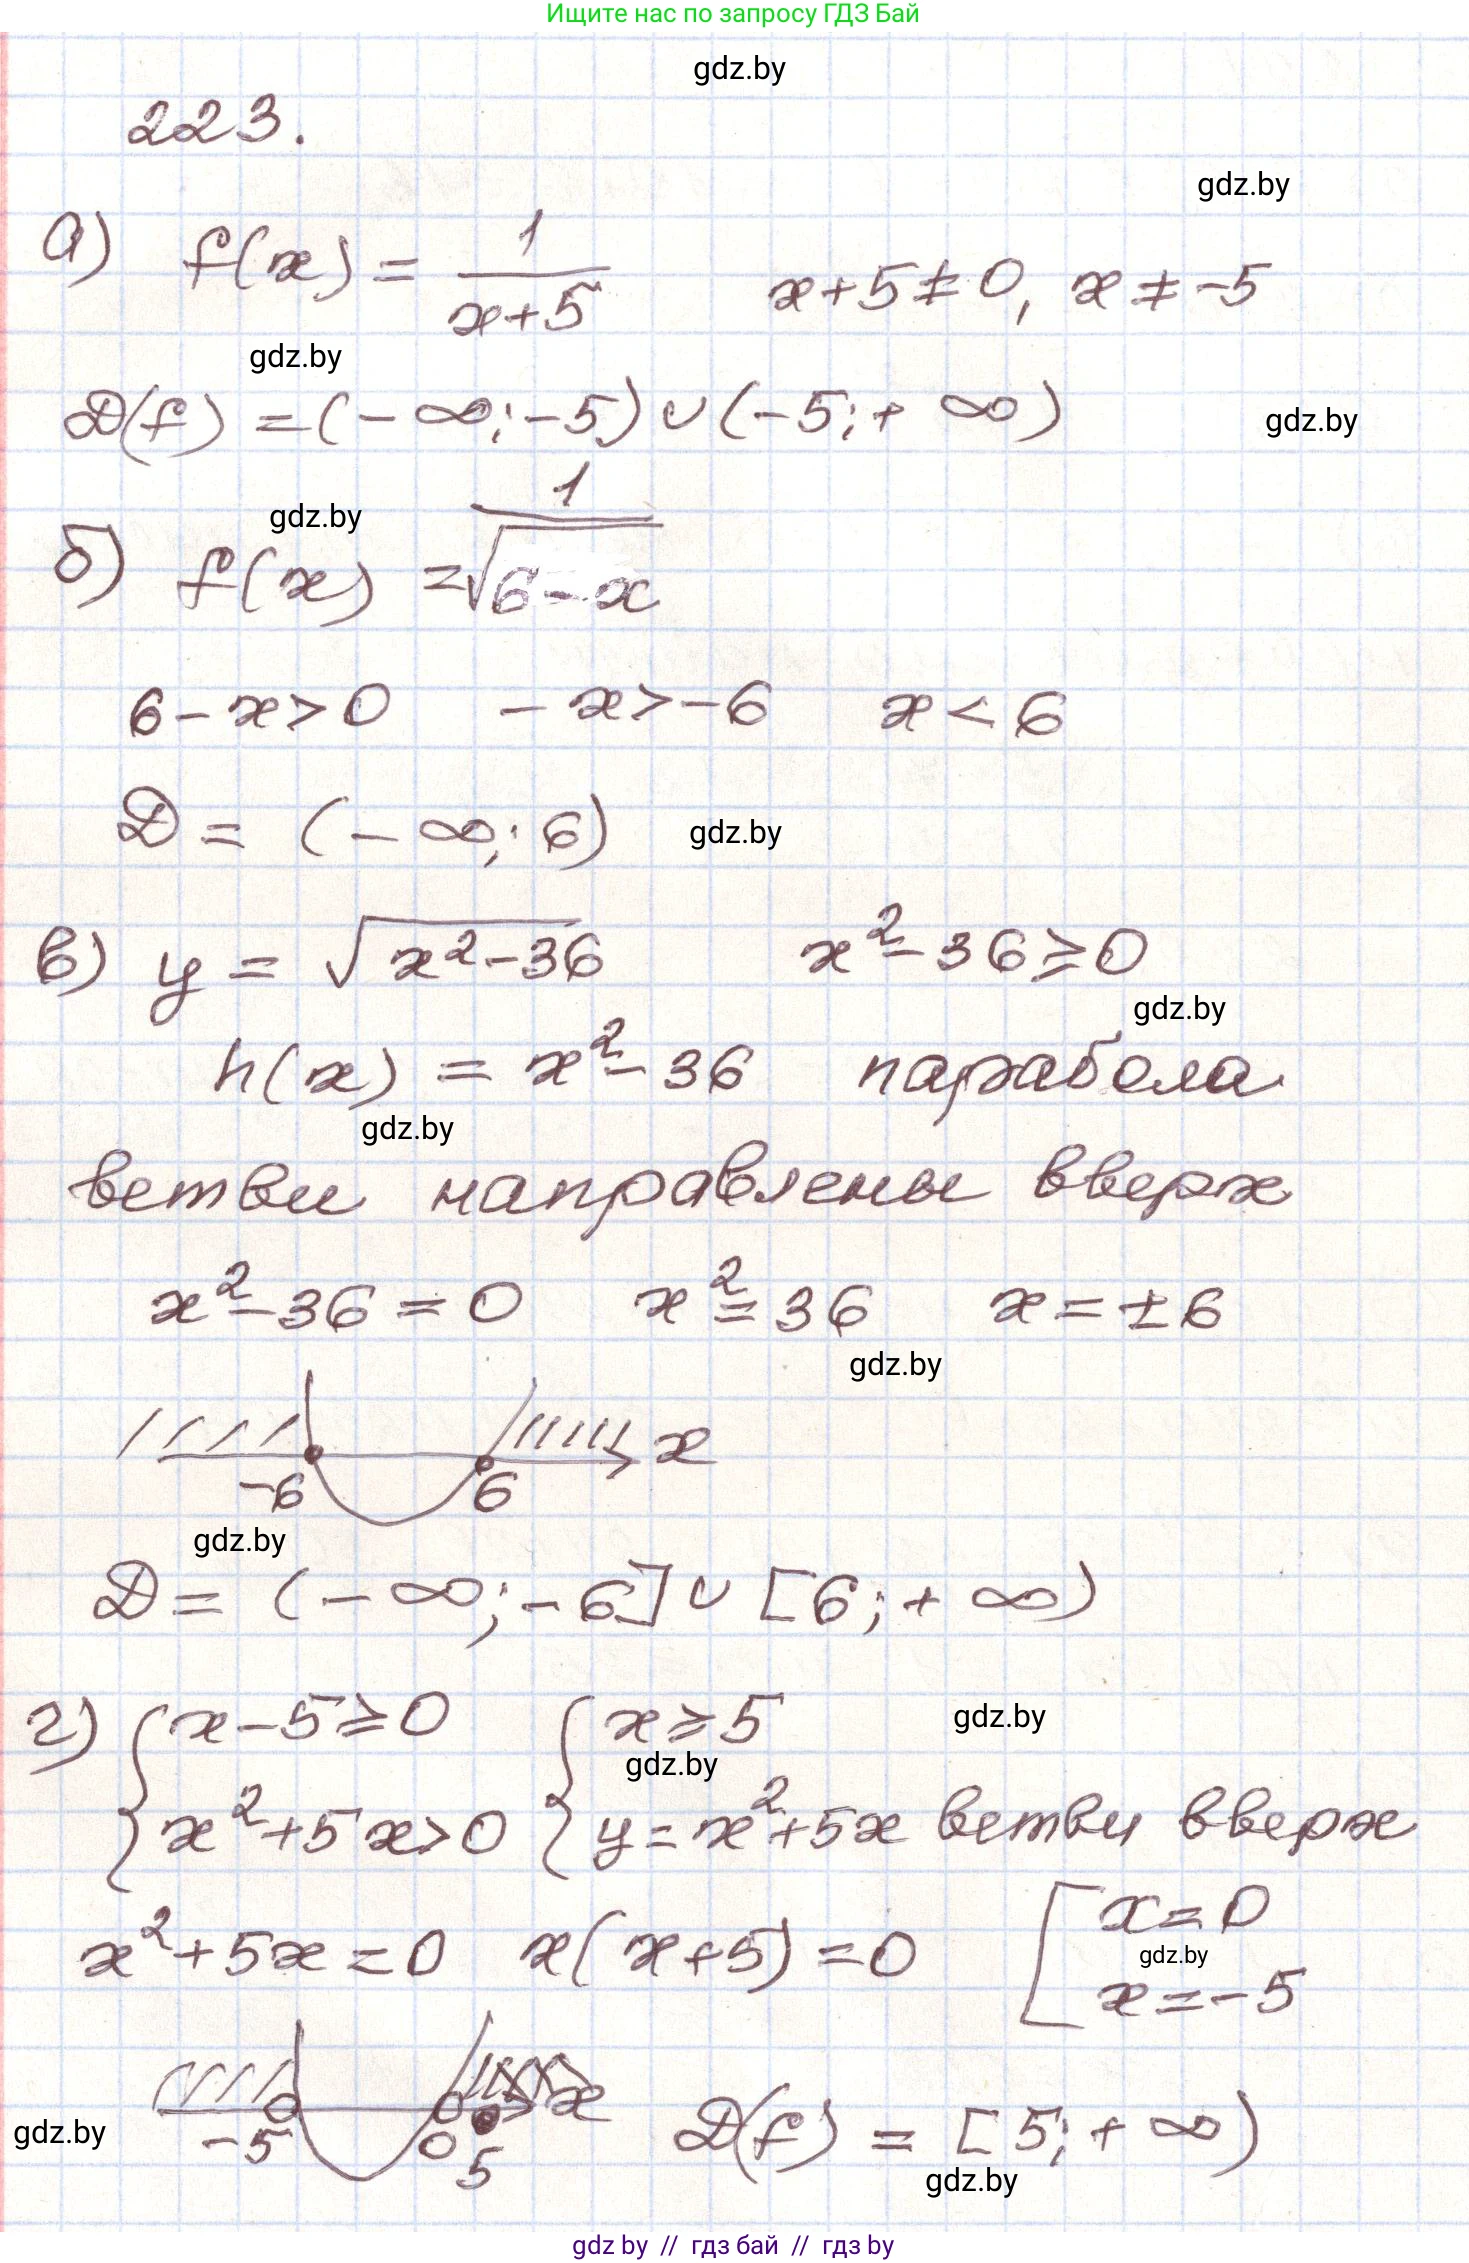 Ищите нас по запросу ГДЗ Бай
gdz.by
223.
gdz.by
а) f(x) = 1/(x+5) x+5≠0, x≠-5
gdz.by
D(f) = (-∞;-5)∪(-5;+∞)
gdz.by
gdz.by
б) f(x) = 1/√(6-x)
6-x>0 -x>-6 x<6
D = (-∞;6)
gdz.by
в) y = √(x²-36) x²-36≥0
gdz.by
h(x) = x²-36 парабола
gdz.by
ветви направлены вверх
x²-36=0 x²=36 x=±6
gdz.by
x
-6 6
gdz.by
D = (-∞;-6]∪[6;+∞)
г) {x-5≥0 {x≥5
gdz.by
gdz.by
x²+5x>0 y=x²+5x ветви вверх
x²+5x=0 x(x+5)=0 [x=0
gdz.by
x=-5
x
-5 0 5
gdz.by
D(f) = [5;+∞)
gdz.by
gdz by // гдз бай // гдз by